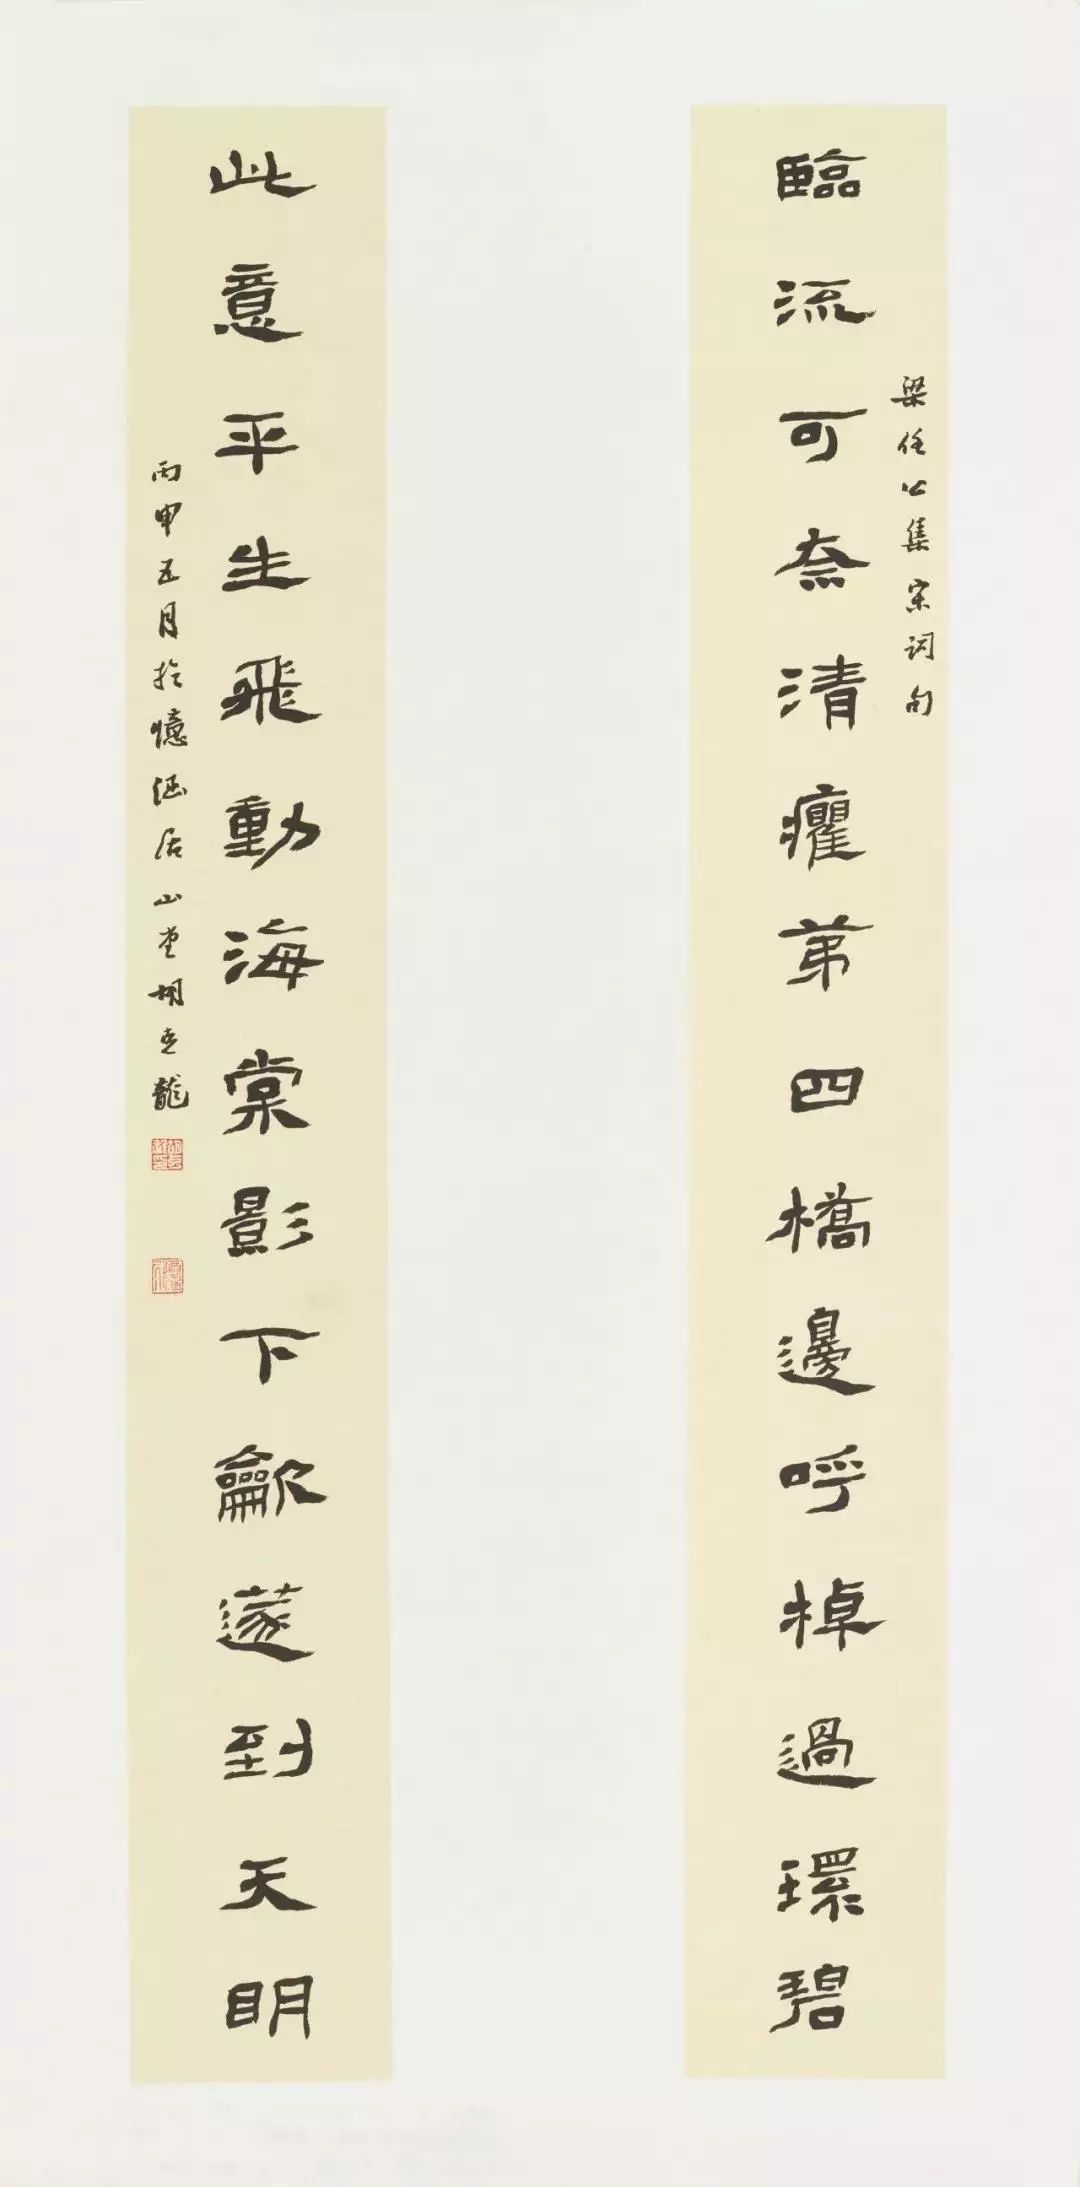 臨流可奈清癯弟四橋邊呼棹過環碧
梁任公集宋詞句
此意平生飛動海棠影下龡邃到天明
丙申五月於憶
居山堂胡立龍